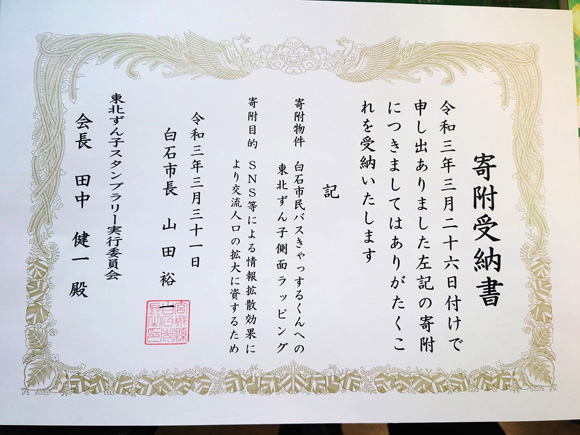 寄附受納書
令和三年三月二十六日付けで
申し出ありました左記の寄附
につきましてはありがたくこ
れを受納いたします
記
寄附物件 白石市民バスきゃっするくんへの
東北ずん子側面ラッピング
寄附目的 SNS等による情報拡散効果に
より交流人口の拡大に資するため
令和三年三月三十一日
白石市長 山田裕一
東北ずん子スタンプラリー実行委員会
会長 田中 健一 殿